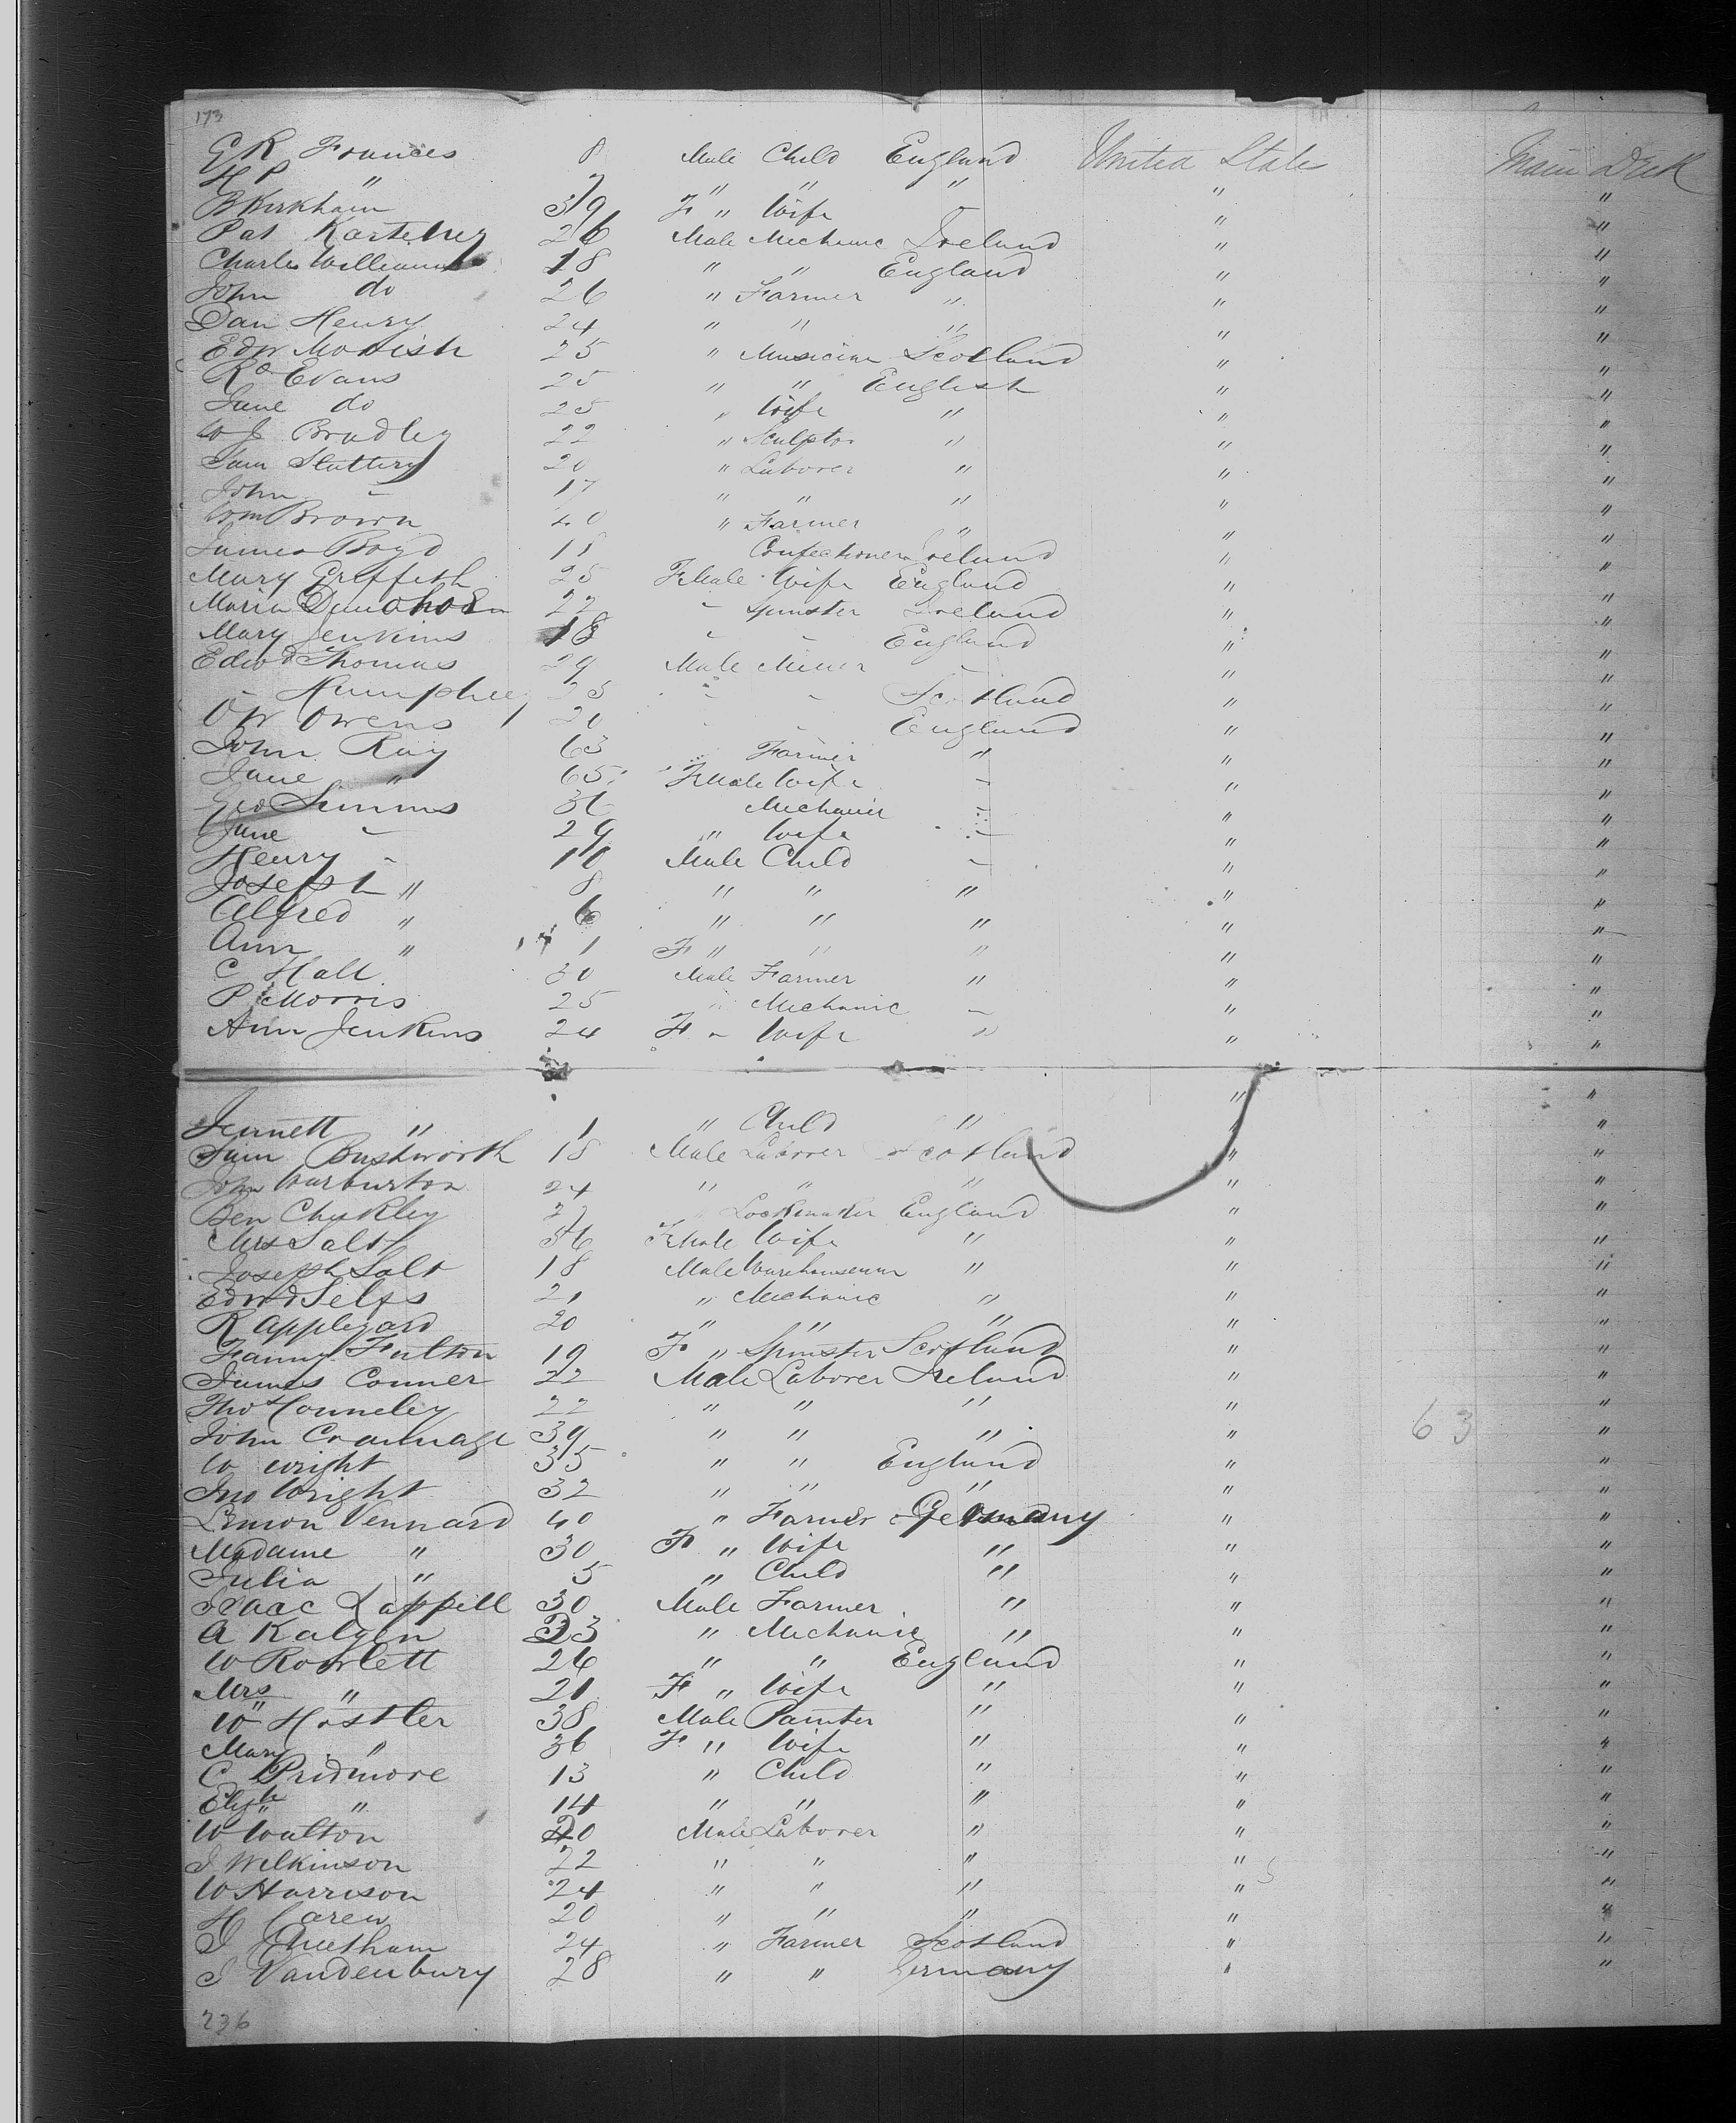 173
G R Frances 8 Male Child England United State Main Deck
H P " 7 " " " " "
B Kirkham 39 F " Wife " "
Pat 26 Male Mechanic Ireland " "
Charles Williams 18 " " England " "
John do 26 " Farmer " " "
Dan Henry 24 " " " " "
Edw 25 " Musician Scotland " "
Ro Evans 25 " " English " "
Jane do 25 " Wife " " "
W J Bradley 22 " Sculptor " " "
Sam Slattery 20 " Laborer " " "
John - 17 " " " " "
Wm Brown 40 " Farmer " " "
James Boyd 18 Confectioner Ireland " "
Mary Griffeth 25 FMale Wife England " "
Maria 22 - Spinster Ireland " "
Mary Jenkins 18 - - England " "
Edwd Thomas 29 Male Miner - " "
- Humphrey 25 - - Scotland " "
O W Owens 20 - - England " "
John Ray 63 Farmer " " "
Jane " 65 FMale Wife - " "
Geo Simms 36 Mechanic - " "
Jane - 29 " Wife - " "
Henry - 10 Male Child - " "
Joseph " 8 " " " " "
Alfred " 6 " " " " "
Ann " 1 F " " " " "
C Hall 30 Male Farmer " " "
P Morris 25 " Mechanic - " "
Ann Jenkins 24 F - Wife " " "
Jennett " 1 " Child " " "
Sam Bushworth 18 Male Laborer Scotland " "
John Warburton 24 " " " " "
Ben Lockmaker England " "
Mrs Salt 56 FMale Wife " " "
Joseph Salt 18 Male Warehouseman " " "
Edwd Selfs 21 " Mechanic " " "
R Appleyard 20 " " " " "
Fanny Fulton 19 F " Spinster Scotland " "
James Conner 22 Male Laborer Ireland " "
Thos Conneley 22 " " " " "
John 39 " " " " 63 "
W Wright 35 " " England " "
Jno Wright 32 " " " " "
Simon Vennard 40 " Farmer Germany " "
Madame " 30 F " Wife " " "
Julia " 5 " Child " " "
Isaac Lappell 30 Male Farmer " " "
A Kalgen 23 " Mechanic " " "
W Rowlett 26 " " England " "
Mrs " 21 F " Wife " " "
Wm Hostler 38 Male Painter " " "
Mary " 36 F " Wife " " "
C Pridmore 13 " Child " " "
Elizth " 14 " " " " "
W Walton 20 Male Laborer " " "
J Wilkinson 22 " " " " "
W Harrison 24 " " " " "
H Carew 20 " " " " "
J Cheetham 24 " Farmer Scotland " "
J Vandenbury 28 " " Germany " "
236